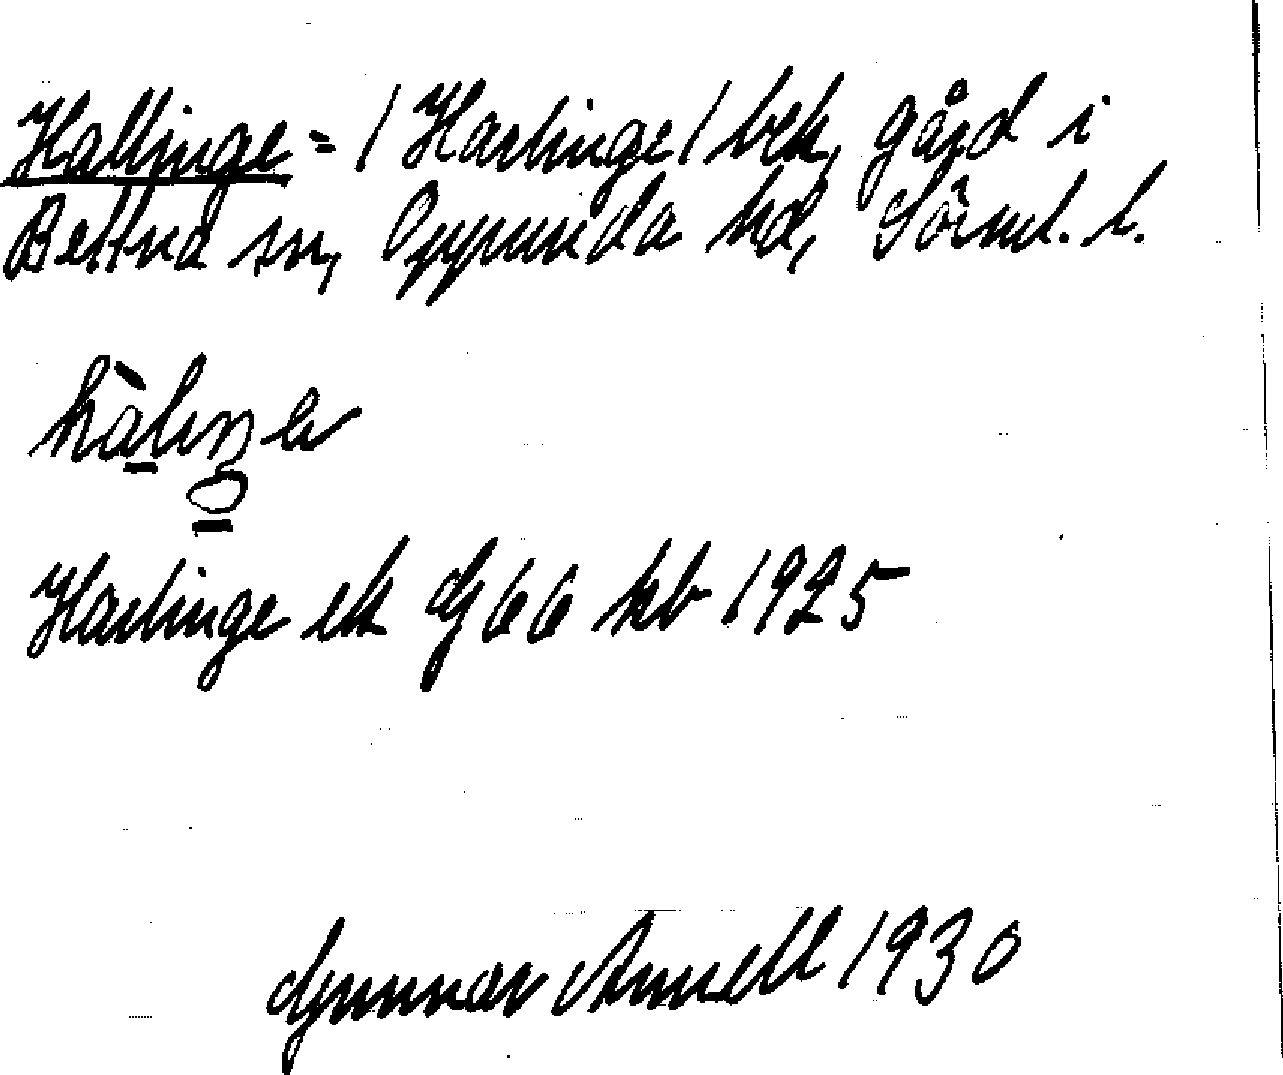 Hallinge = / Harlinge / bek, gård i
Bettna sn, Oppunda hd, Sörml. l.
Harlinge ek GJ 66 kb 1925
Gunnar Annell 1930